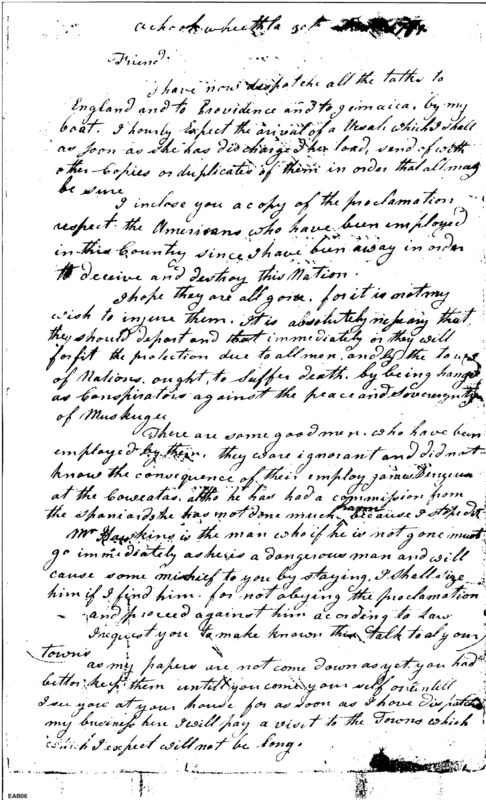 achookwheethla 30th
Friend
I have now dispatche all the talks to
England and to Providence and to Jemaica, by my
boat. I hourly Expect the arival of a Vesal which I shall
as soon as she has discharged her load, send of with
other Copies or duplicates of them in order that all may
be sure
I inclose you a copy of the proclamation
respect the Americans who have been employed
in this Country since I have been away in order
to deceive and destroy this Nation.
I hope they are all gone. for it is not my
wish to injure them. It is absolutely that
they should depart and that immediately or they will
forfit the protection due to all men. and by the
of Nations. ought, to suffer death. by being hanged
as Conspirators against the peace and Sovereignty
of Muskogee
There are some good men. who have been
employed by them, they ware ignorant and did not
know the consequence of their employ James
at the Cowcatas. altho he has had a commission from
the Spaniards, he has not done much harm because I stoped it
Mr Hawkins is the man who if he is not gone must
go immediately as he is a dangerous man and will
cause some mischief to you by staying, I shall
him if I find him. for not obeying the proclamation
and proceed against him according to Law
I request you to make known this talk to al your
towns
as my papers are not come down as yet you had
better keep them untill you come your self or untill
I see you at your house for as soon as I have dispatched
my business here I will pay a visit to the Towns which
which I expect will not be long.
EAB06